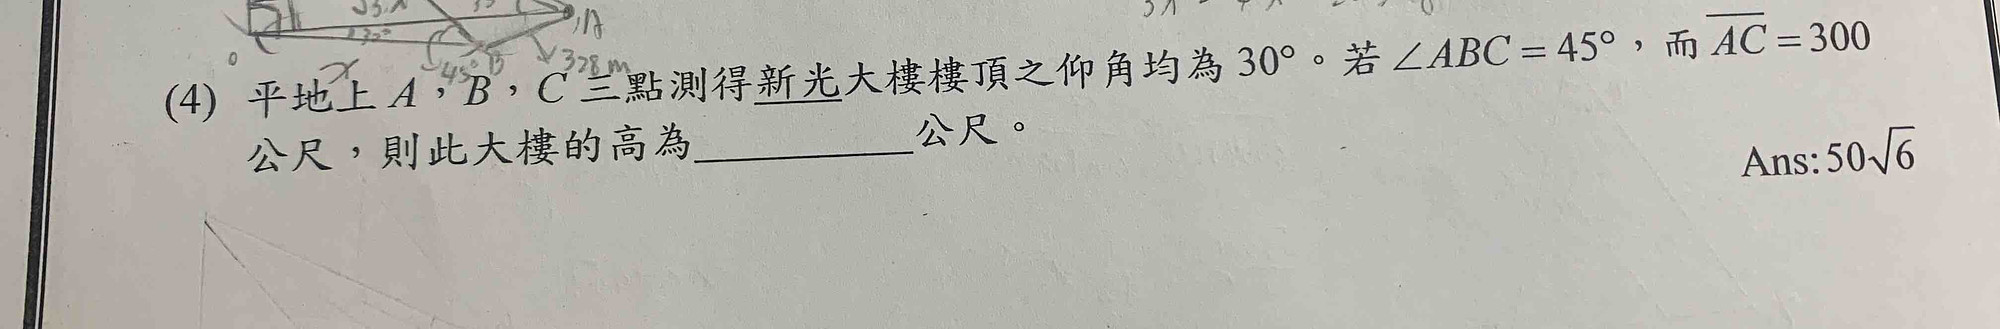 30°
A
45° B
328m
(4) 平地上 A，B，C 三點測得新光大樓樓頂之仰角均為 30°。若 ∠ABC = 45°，而 AC = 300
公尺，則此大樓的高為__________公尺。
Ans: 50√6